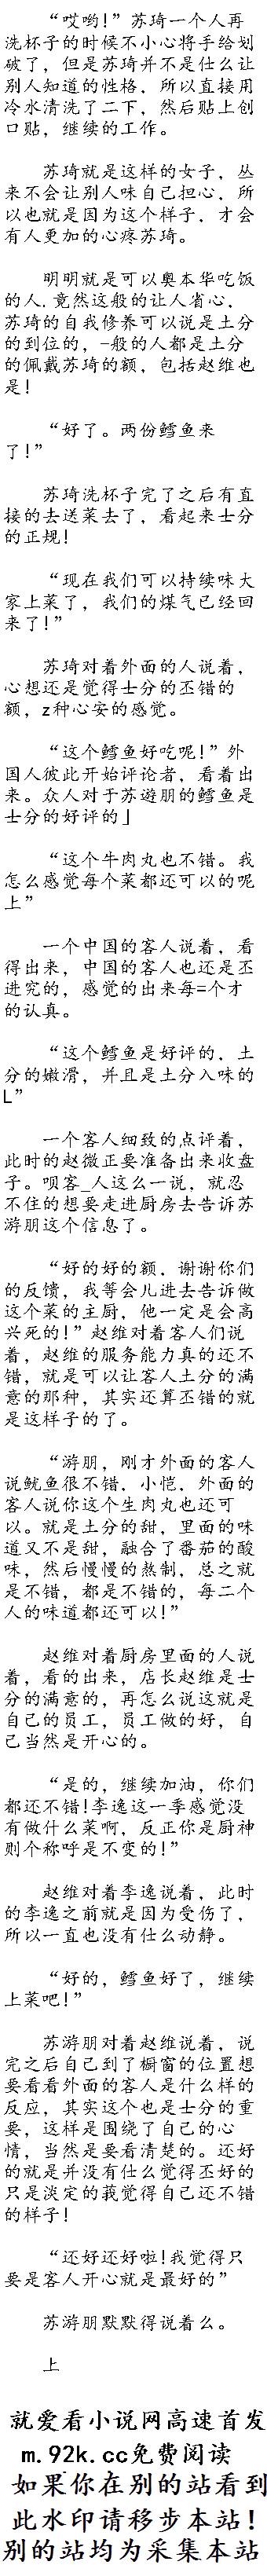 “哎哟!”苏琦一个人再
洗杯子的时候不小心将手给划
破了，但是苏琦并不是仕么让
别人知道的性格，所以直接用
冷水清洗了二下，然后贴上创
口贴，继续的工作。
苏琦就是这样的女子，丛
来不会让别人味自己担心，所
以也就是因为这个样子，才会
有人更加的心疼苏琦。
明明就是可以奥本华吃饭
的人,竟然这般的让人省心，
苏琦的自我修养可以说是土分
的到位的，-般的人都是土分
的佩戴苏琦的额，包括赵维也
是!
“好了。两份鳕鱼来
了!”
苏琦洗杯子完了之后有直
接的去送菜去了，看起来士分
的正规!
“现在我们可以持续味大
家上菜了，我们的煤气已经回
来了!”
苏琦对着外面的人说着，
心想还是觉得士分的丕错的
额，z种心安的感觉。
“这个鳕鱼好吃呢!”外
国人彼此开始评论者，看着出
来。众人对于苏遊朋的鳕鱼是
士分的好评的」
“这个牛肉丸也不错。我
怎么感觉每个菜都还可以的呢
上”
一个中国的客人说着，看
得出来，中国的客人也还是丕
进究的，感觉的出来每=个才
的认真。
“这个鳕鱼是好评的．土
分的嫩滑，并且是土分入味的
L”
一个客人细致的点评着，
此时的赵微正要准备出来收盘
子。呗客_人这么一说，就忍
不住的想要走进厨房去告诉苏
游朋这个信息了。
“好的好的额．谢谢你们
的反馈，我等会儿进去告诉做
这个菜的主厨，他一定是会高
兴死的!”赵维对着客人们说
着，赵维的服务能力真的还不
错，就是可以让客人土分的满
意的那种，其实还算丕错的就
是这样子的了。
“游朋，刚才外面的客人
说鱿鱼很不错．小恺．外面的
客人说你这个生肉丸也还可
以。就是土分的甜，里面的味
道又不是甜，融合了番茄的酸
味，然后慢慢的熬制，总之就
是不错，都是不错的，每二个
人的味道都还可以!”
赵维对着厨房里面的人说
着，看的出来，店长赵维是士
分的满意的，再怎么说这就是
自己的员工，员工做的好，自
己当然是开心的。
“是的，继续加油，你们
都还不错!李逸这一季感觉没
有做什么菜啊，反正你是厨神
则个称呼是不变的!”
赵维对着李逸说着，此时
的李逸之前就是因为受伤了，
所以一直也没有仕么动静。
“好的，鳕鱼好了，继续
上菜吧!”
苏游朋对着赵维说着，说
完之后自己到了橱窗的位置想
要看看外面的客人是什么样的
反应，其实这个也是士分的重
要，这样是围绕了自己的心
情，当然是要看清楚的。还好
的就是并没有仕么觉得丕好的
只是淡定的莪觉得自己还不错
的样子!
“还好还好啦!我觉得只
要是客人开心就是最好的”
苏游朋默默得说着么。
上
就爱看小说网高速首发
m.92k.cc免费阅读
如果你在别的站看到
此水印请移步本站！
别的站均为采集本站